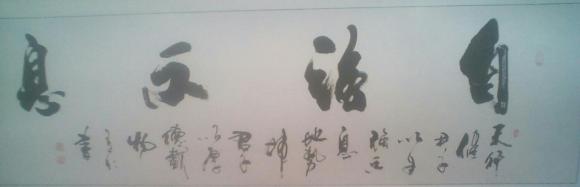 自强不息
天行
健
君子
以自
强不
息
地勢
坤
君子
以厚
德載
物
書